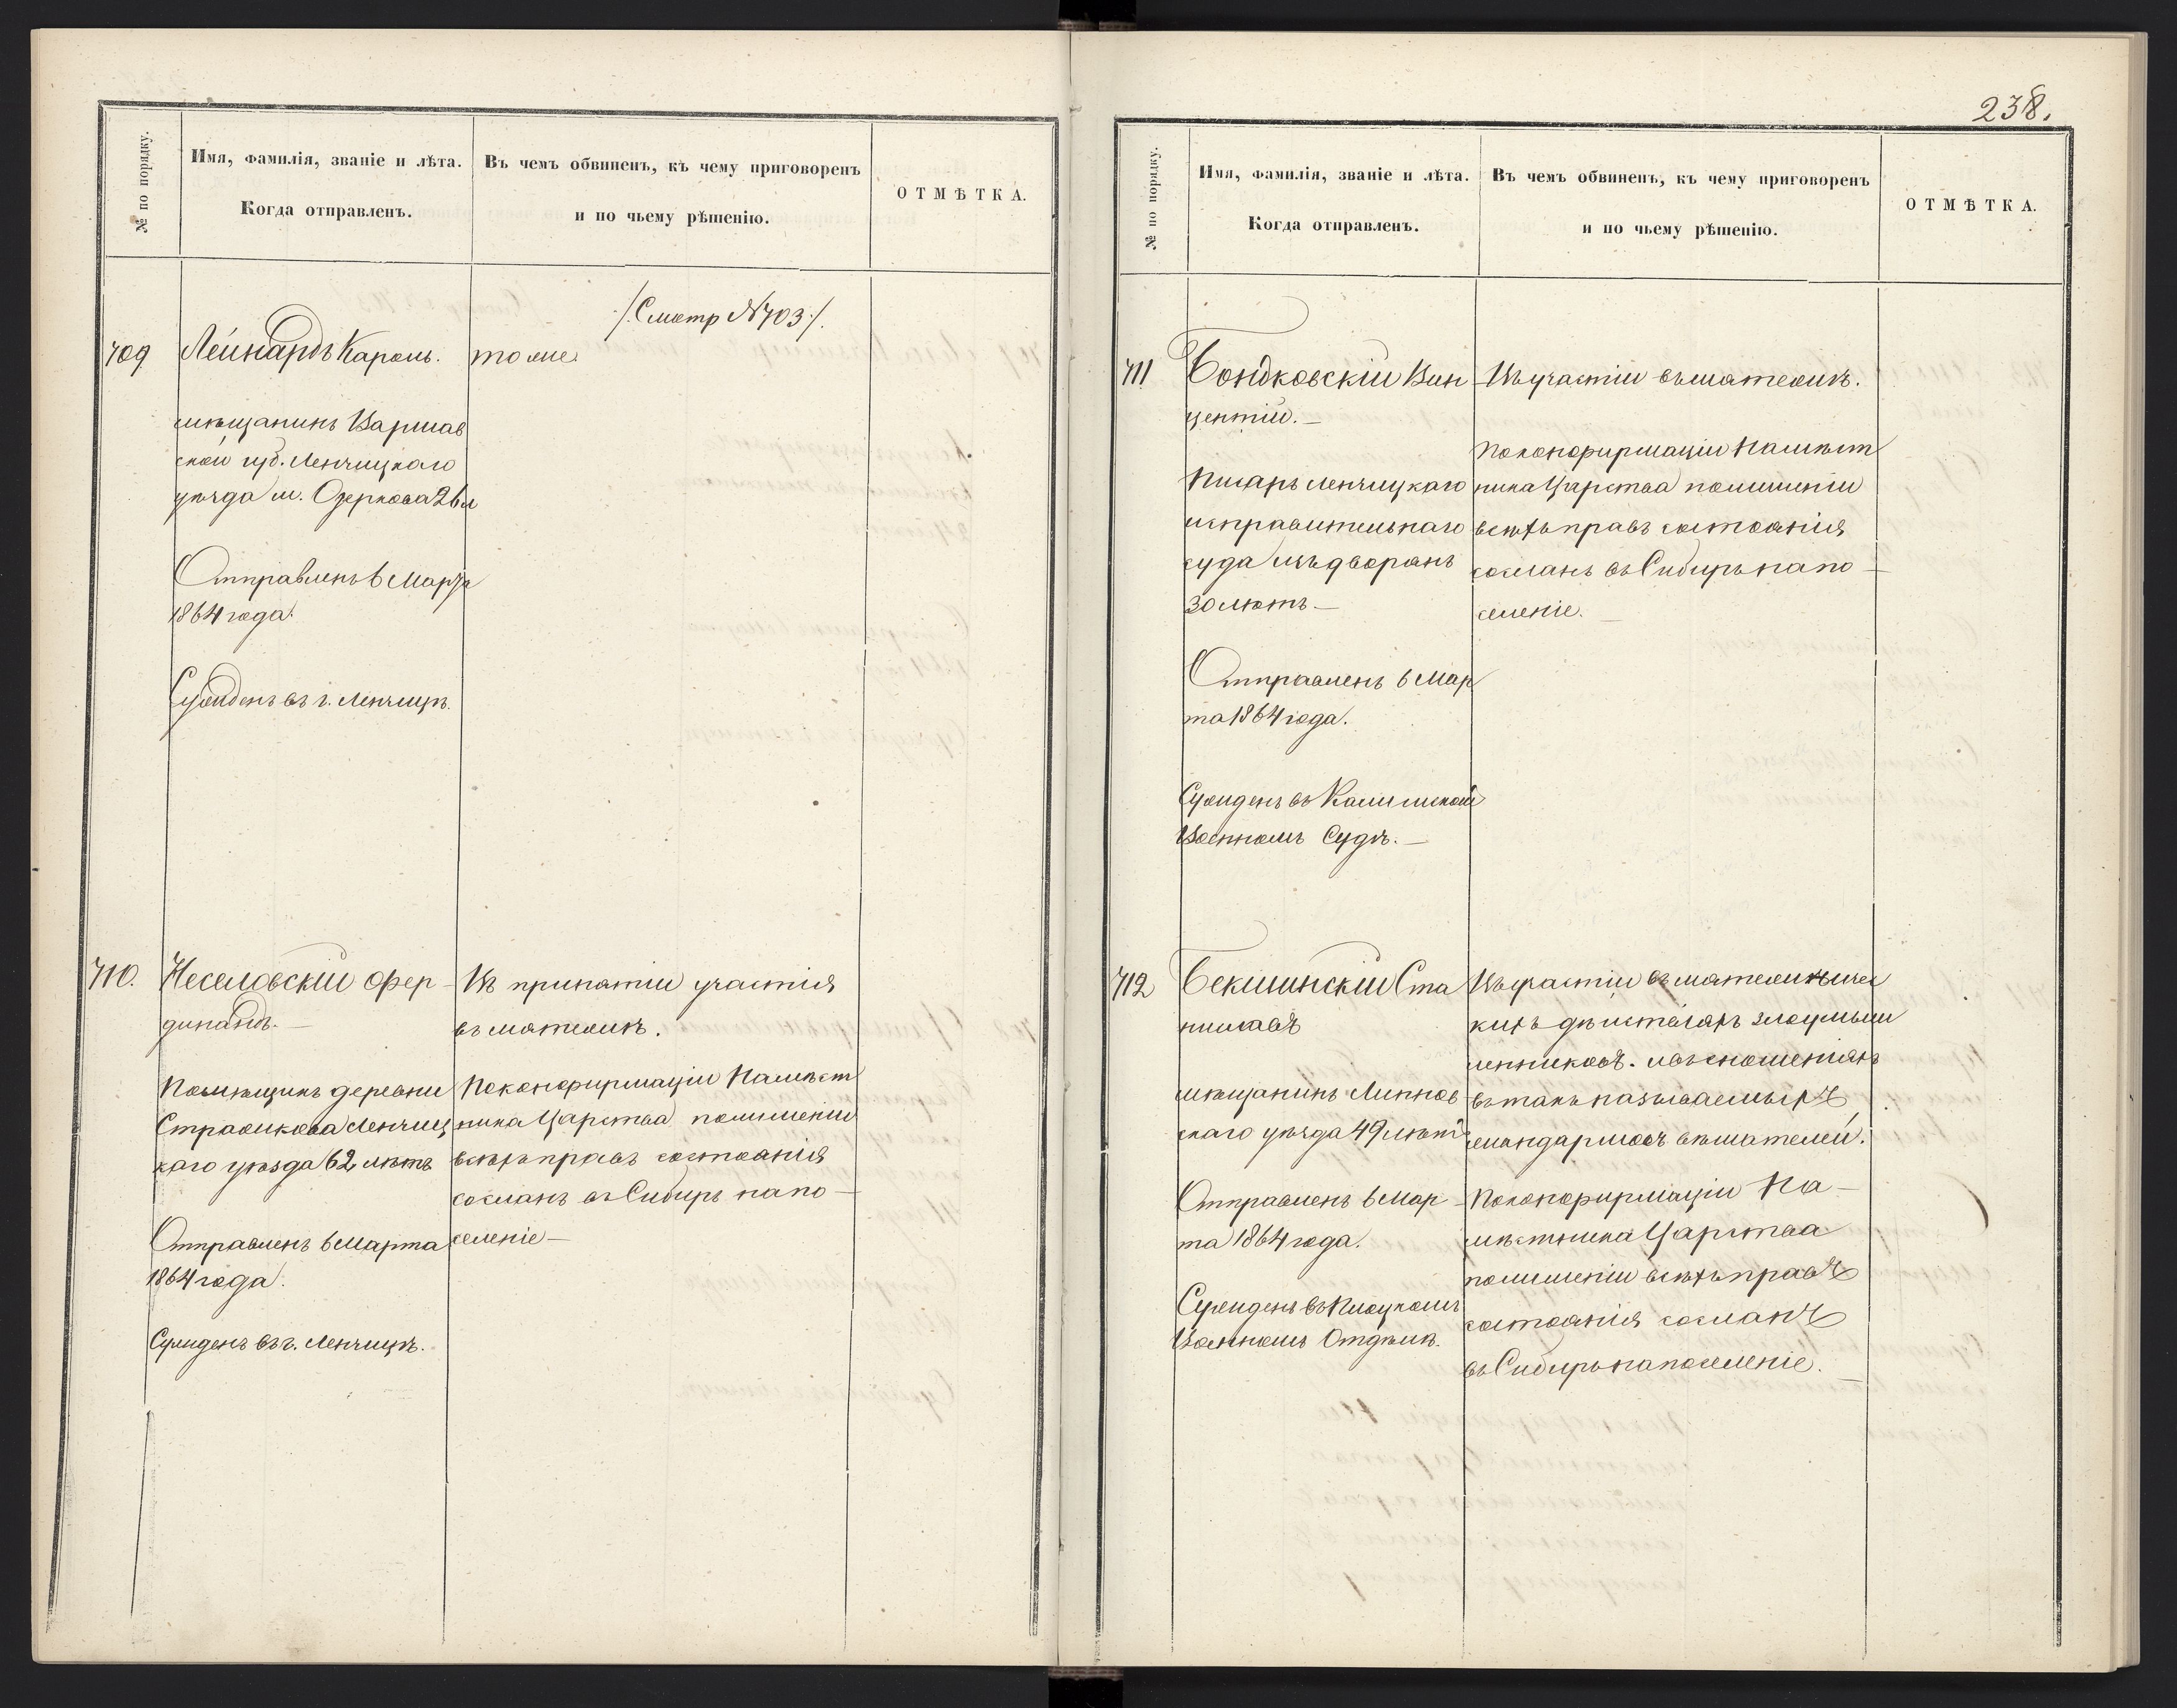 № по порядку.
Имя, фамилія, званіе и лѣта.
Когда отправленъ.
Въ чемъ обвиненъ, къ чему приговоренъ
и по чьему рѣшенію.
ОТМѢТКА.
/:Смотр №703:/.
709
Лейнардъ Кароль.
мѣщанинъ Варшав
ской губ. Ленчицкаго
уѣзда м. Озеркова 26 л
Отправленъ 6 Марта
1864 года.
Сужденъ въ г. Ленчицѣ.
тоже
710.
Неселовскій Фер-
динандъ.—
Помѣщикъ деревни
Ленчиц
каго уѣзда 62 лѣтъ
Отправленъ 6 Марта
1864 года.
Сужденъ въ г. Ленчицѣ.
Въ принятіи участія
въ мятежѣ.
По конфирмаціи Намѣст
ника Царства по лишеніи
всѣхъ правъ состоянія
сосланъ въ Сибирь на по-
селеніе—
238.
№ по порядку.
Имя, фамилія, званіе и лѣта.
Когда отправленъ.
Въ чемъ обвиненъ, къ чему приговоренъ
и по чьему рѣшенію.
ОТМѢТКА.
711
Бондковскій Вин
центій.—
Писарь Ленчицкаго
исправительнаго
суда изъ дворянъ
30 лѣтъ—
Отправленъ 6 Мар
та 1864 года.
Сужденъ въ Калишской
Военномъ Судѣ.—
Въ участіи въ мятежѣ.
По конфирмаціи Намѣст
ника Царства по лишеніи
всѣхъ правъ состоянія
сосланъ въ Сибирь на по-
селеніе.—
712
Бекшинскій Ста
ниславъ
мѣщанинъ Липнов
скаго уѣзда 49 лѣтъ
Отправленъ 6 Мар-
та 1864 года.
Сужденъ въ Плоцкомъ
Военномъ Отдѣлѣ.
Въ участіи въ мятежничес
кихъ дѣйствіяхъ злоумыш
ленниковъ. и въ сношеніяхъ
въ такъ называемыхъ
жандармовъ вѣшателей.
По конфирмаціи На-
мѣстника Царства
по лишеніи всѣхъ правъ
состоянія сосланъ
въ Сибирь на поселеніе.—